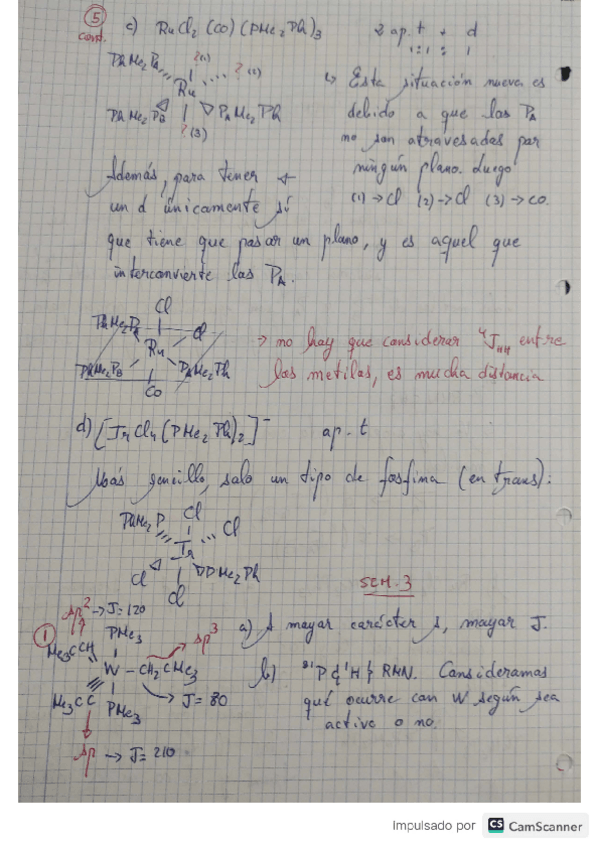 ⑤ cont.
c) RuCl₂(CO)(PMe₂Ph)₃ 2 ap. t + d
1:1 : 1
PhMe₂P_A ?(1) ? (2)
Ru
PhMe₂P_B P_A Me₂Ph
? (3)
↳ Esta situación nueva es
debido a que las P_A
no son atravesadas por
ningún plano. Luego
(1) → Cl (2) → Cl (3) → CO.
Además, para tener
un d únicamente sí
que tiene que pasar un plano, y es aquel que
interconvierte las P_A.
Cl
PhMe₂P_A Cl
Ru
PhMe₂P_B P_A Me₂Ph
CO
→ no hay que considerar ⁴J_HH entre
los metilos, es mucha distancia
d) [IrCl₄(PMe₂Ph)₂]⁻ ap. t
Más sencillo, solo un tipo de fosfina (en trans):
PhMe₂P Cl Cl
Ir
Cl PMe₂Ph
Cl
SEM. 3
① sp² → J=120
PMe₃ sp³
Me₃CCH
W - CH₂CMe₃
Me₃CC PMe₃ → J=80
sp → J=210
a) A mayor carácter s, mayor J.
b) ³¹P{¹H} RMN. Consideramos
qué ocurre con W según sea
activo o no.
Impulsado por CS CamScanner